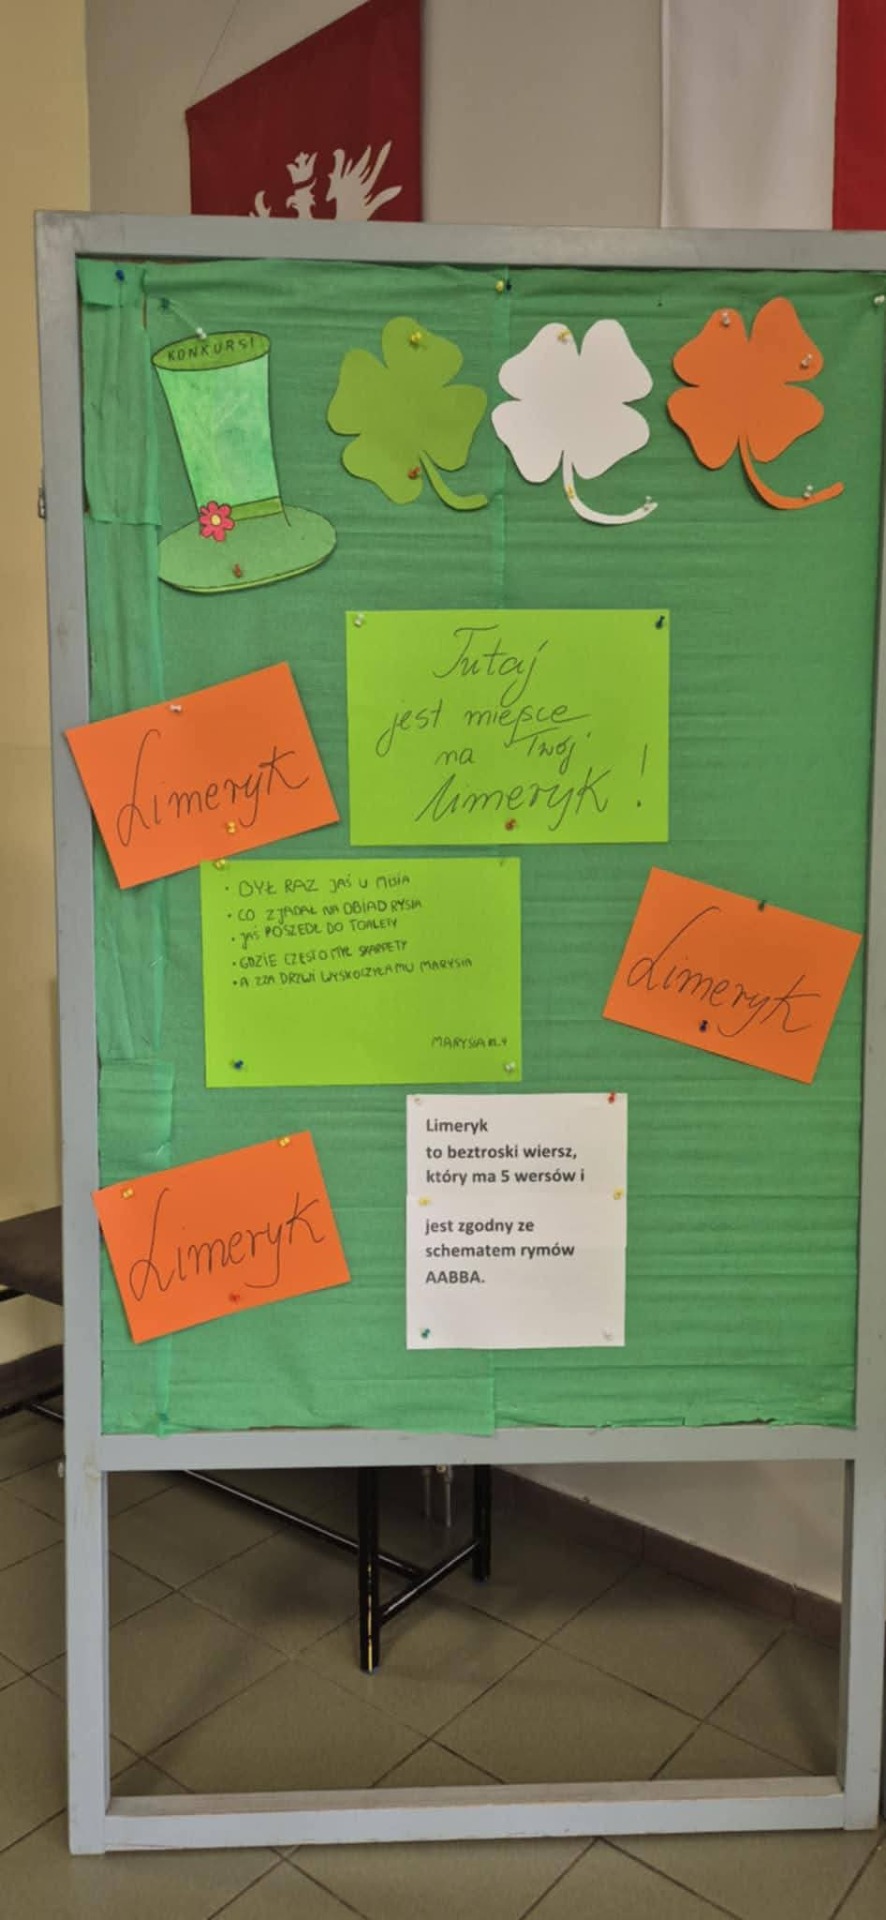 KONKURS!
Tutaj
jest miejsce
na Twój
limeryk!
Limeryk
• BYŁ RAZ JAŚ U MISIA
• CO ZJADAŁ NA OBIAD RYSIA
• JAŚ POSZEDŁ DO TOALETY
• GDZIE CZĘSTO MYŁ SKARPETY
• A ZZA DRZWI WYSKOCZYŁA MU MARYSIA
MARYSIA KL.4
Limeryk
Limeryk
to beztroski wiersz,
który ma 5 wersów i
jest zgodny ze
schematem rymów
AABBA.
Limeryk